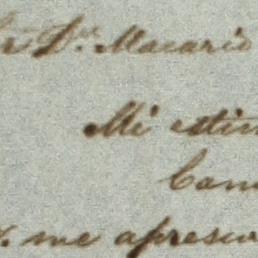 Dn. Macario
Mi estim
Cam
me apresur